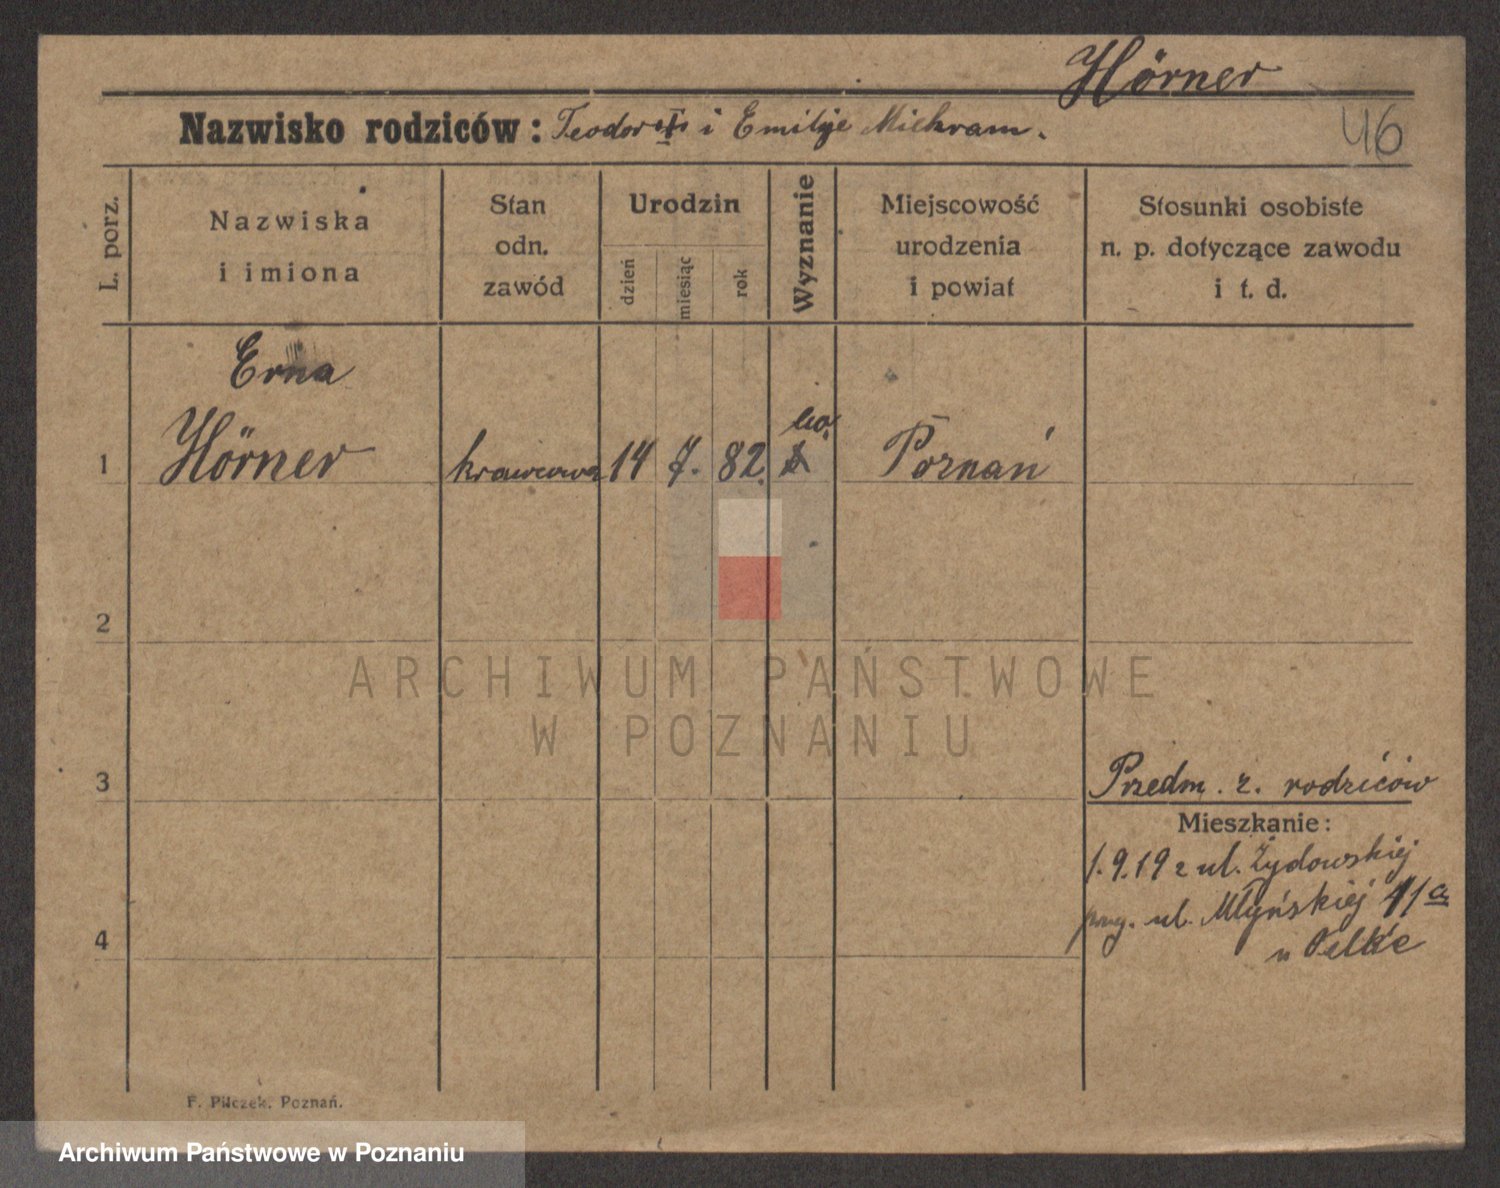 Hörner
46
Nazwisko rodziców: Teodor i Emilje
L. porz.
Nazwiska
i imiona
Stan
odn.
zawód
Urodzin
dzień
miesiąc
rok
Wyznanie
Miejscowość
urodzenia
i powiat
Stosunki osobiste
n. p. dotyczące zawodu
i t. d.
Erna
1 Hörner krawcowa 14 7. 82. Poznań
2
ARCHIWUM PAŃSTWOWE
W POZNANIU
3
Przedm. z. rodziców
Mieszkanie:
1.9.19 z ul. Żydowskiej
ul. Młyńskiej 11a
4
F. Pilczek, Poznań.
Archiwum Państwowe w Poznaniu